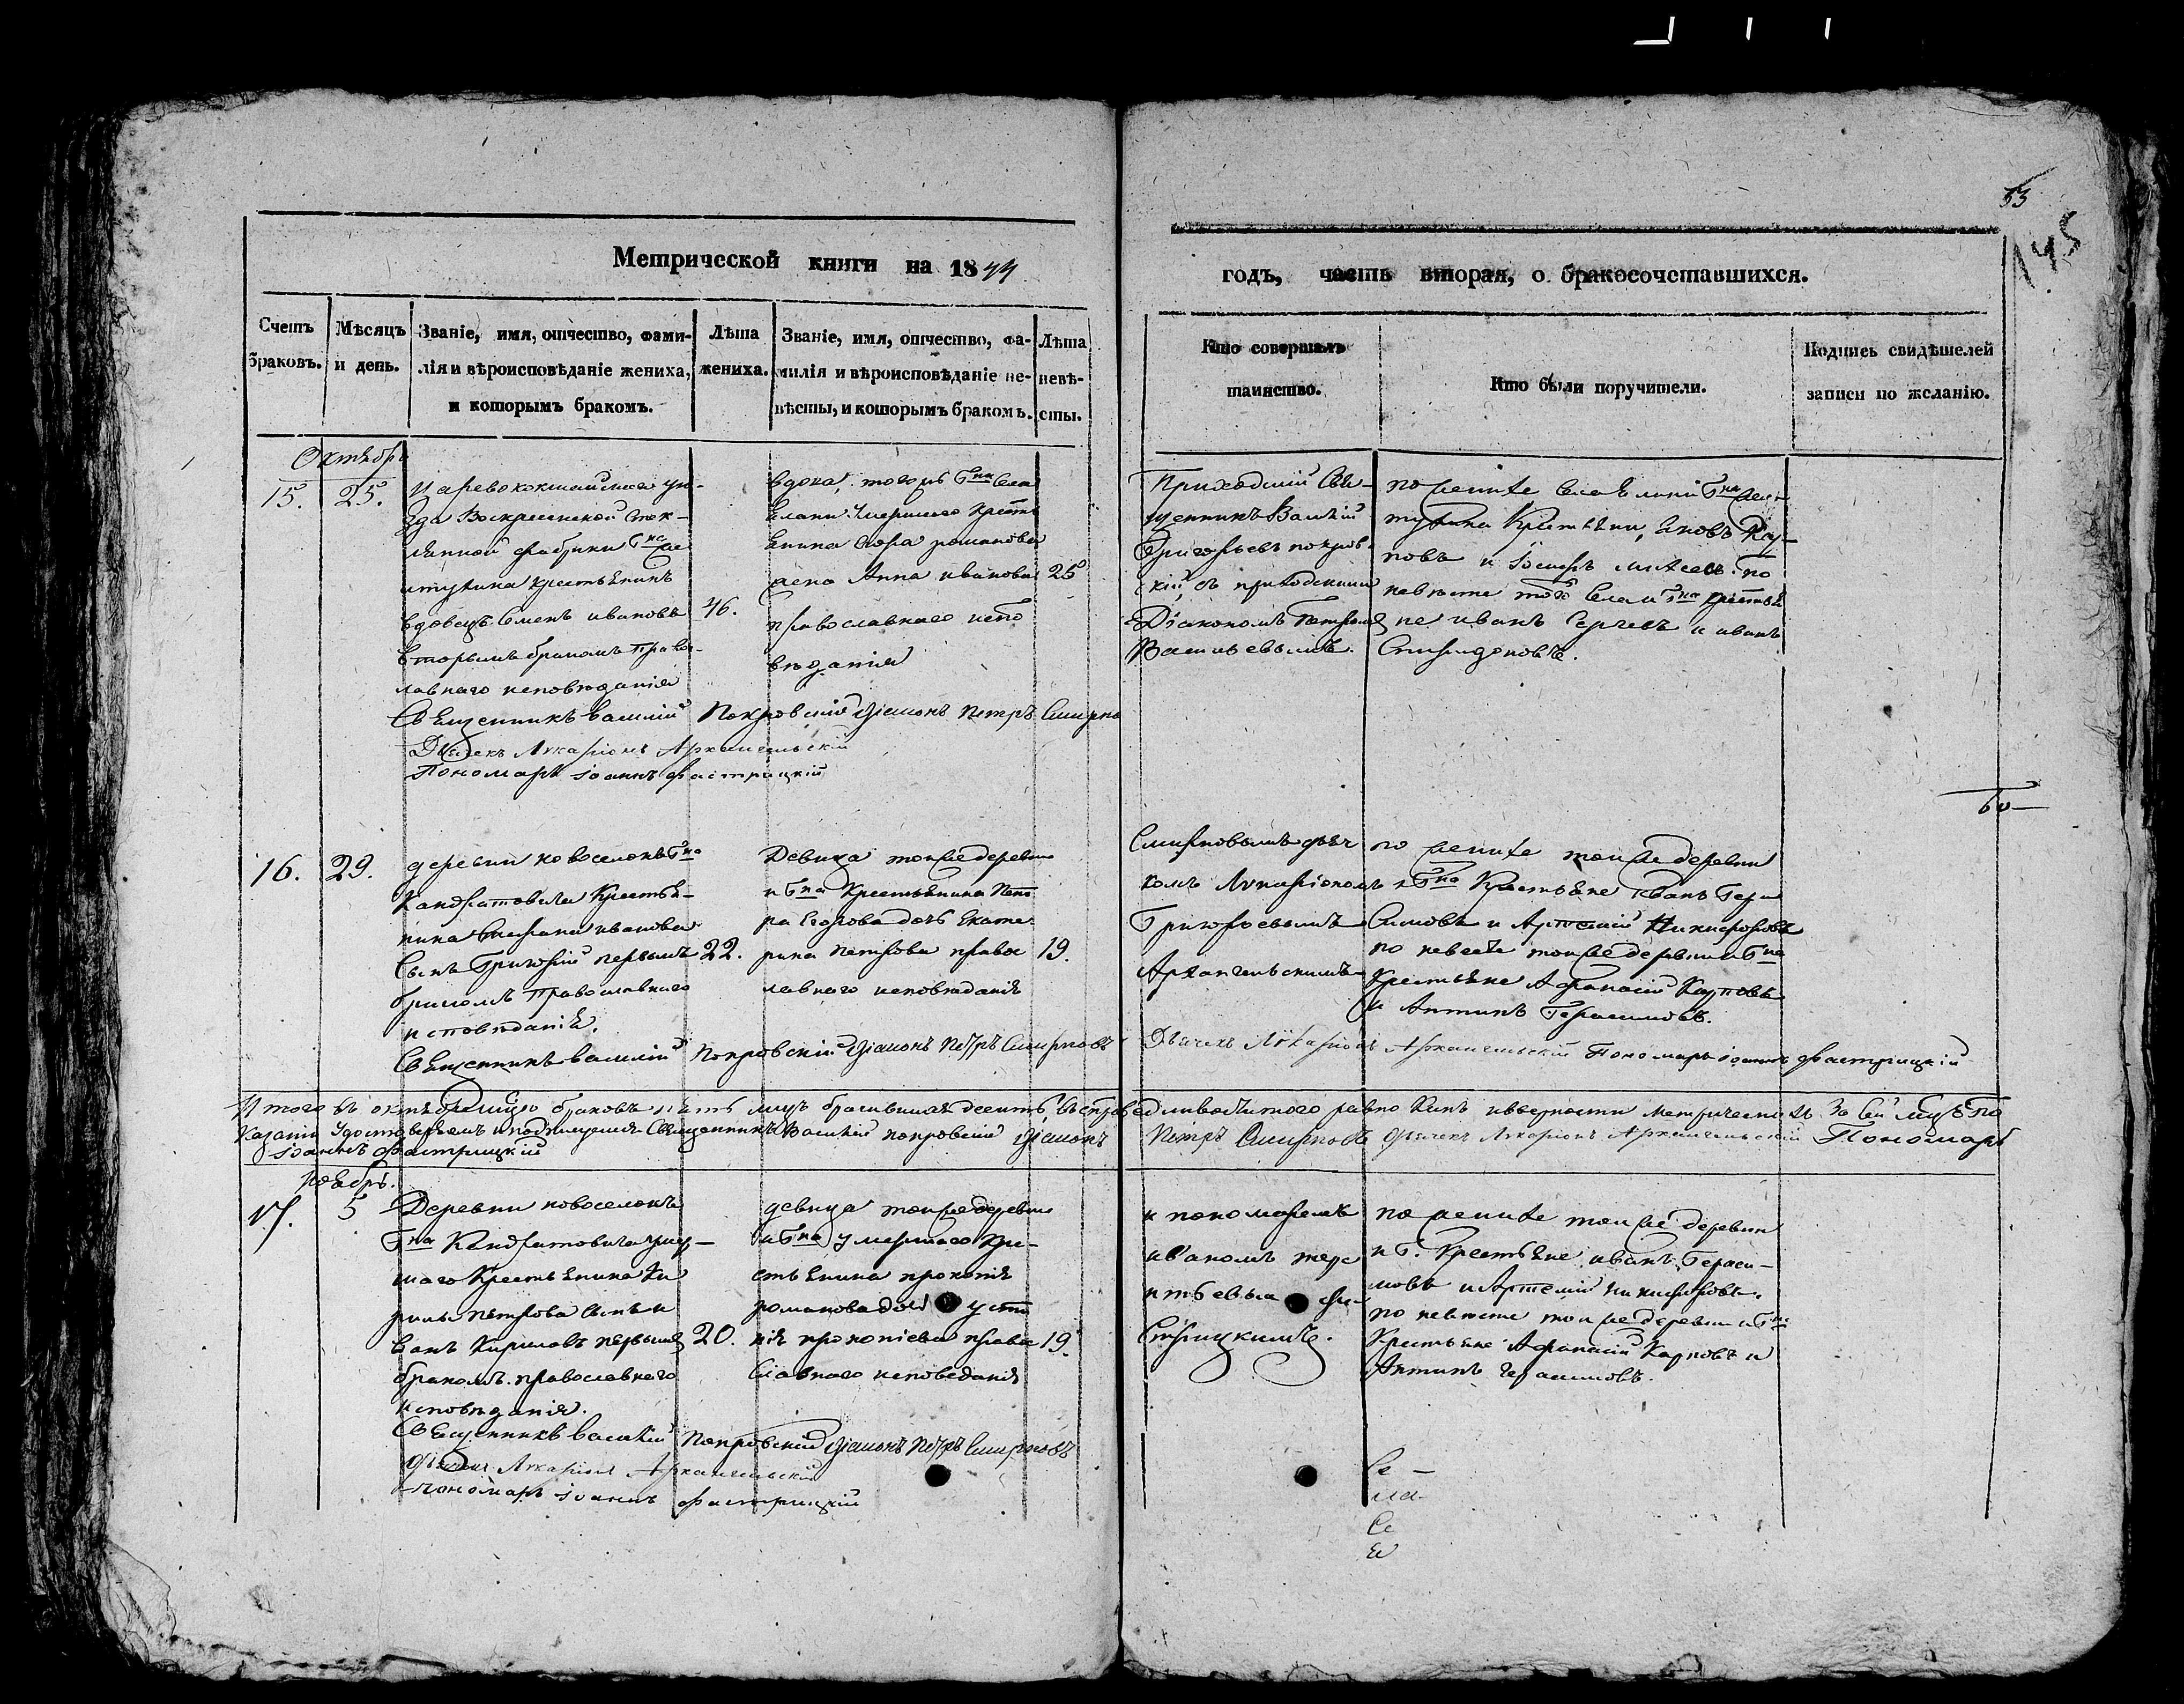 53
145
Метрической книги на 1844
годъ, часть вторая, о бракосочетавшихся.
Счетъ браковъ.
Мѣсяцъ и день.
Званіе, имя, отчество, фами-
лія и вѣроисповѣданіе жениха,
и которымъ бракомъ.
Лѣта
жениха.
Званіе, имя, отчество, фа-
милія и вѣроисповѣданіе не-
вѣсты, и которымъ бракомъ.
Лѣта
невѣ-
сты.
Кто совершалъ
таинство.
Кто были поручители.
Подпись свидѣтелей
записи по желанію.
Октябрь
15.
25.
Царевококшайскаго уѣ-
зда Воскресенской Стек-
лянной фабрики Гна
крестьянинъ
вдовецъ Семенъ ивановъ
вторымъ бракомъ Правос-
лавнаго исповѣданія
46.
вдова, тогожъ Гна села
умершаго Крестья
янина романова
Анна иванова
православнаго испо
вѣданія
25
Приходскій Свя-
щенникъ Василій
Григорьевъ покров-
скій, съ приходскимъ
Діакономъ Петромъ
Васильевымъ.
по женихе села Гна
Крестьяни, Яковъ Кар-
повъ и по
невѣсте того Села и Гна крестья
не иванъ Сергеевъ и иванъ
Спиридоновъ.
Священникъ Василий Покровскій Діаконъ Петръ Смирно
Дьячекъ Иларіонъ Архангельскій
Пономарь Іоаннъ Фастрицкій
60
16.
29.
деревни новоселокъ Гна
Кандратовича Крестья-
нина иванова
Сынъ Григорій первымъ
бракомъ Православнаго
исповѣданія.
22.
Девица тойже деревни
и Гна Крестьянина Пет
ра Егорова дочь Екате
рина Петрова правос
лавнаго исповѣданія
19.
Смирновымъ дьяч
комъ Иларіономъ
Григорьевымъ
Архангельскимъ
по женихе тойже деревни
и Гна Крестьяне Иванъ Гера
симовъ и Артемій Никифоровъ
по невесте тойже деревни и Гна
Крестьяне Афанасій Карповъ
и Антипъ Герасимовъ.
Священникъ Василій Покровскій Діаконъ Петръ Смирновъ
Дьячекъ Иларіонъ Архангельскій Пономарь Іоаннъ Фастрицкій
Итого въ октябре браковъ пять лицъ десять, въ справедливости того равно какъ и верности за сей мцъ по
казаній удостоверяемъ и подписуемся Священникъ Василій покровскій Діаконъ Петръ Смирновъ Дьячекъ Иларіонъ Архангельскій Пономарь
Іоаннъ Фастрицкій
Ноябрь.
17.
5
Деревни новоселокъ
Гна Кандратовича умер-
шаго Крестьянина Ки
рилы петрова сынъ и
ванъ Кириловъ первымъ
бракомъ православнаго
исповѣданія.
20.
девица тойже деревни
и Гна умершаго Кре-
стьянина прокопія
романова дочь усти
нія прокопіева право
славнаго исповеданія
19.
и пономаремъ
иваномъ
Фа-
стрицкимъ.
по женихе тойже деревни
и Г. Крестьяне иванъ Гераси-
мовъ и Артемій никифоровъ.
по невѣсте тойже деревни и Гна
Крестьяне Афанасій Карповъ и
Антипъ Герасимовъ.
Священникъ Василій Покровскій Діаконъ Петръ Смирновъ
Дьячекъ Иларіонъ Архангельскій
Пономарь Іоаннъ Фастрицкій
Се
Се